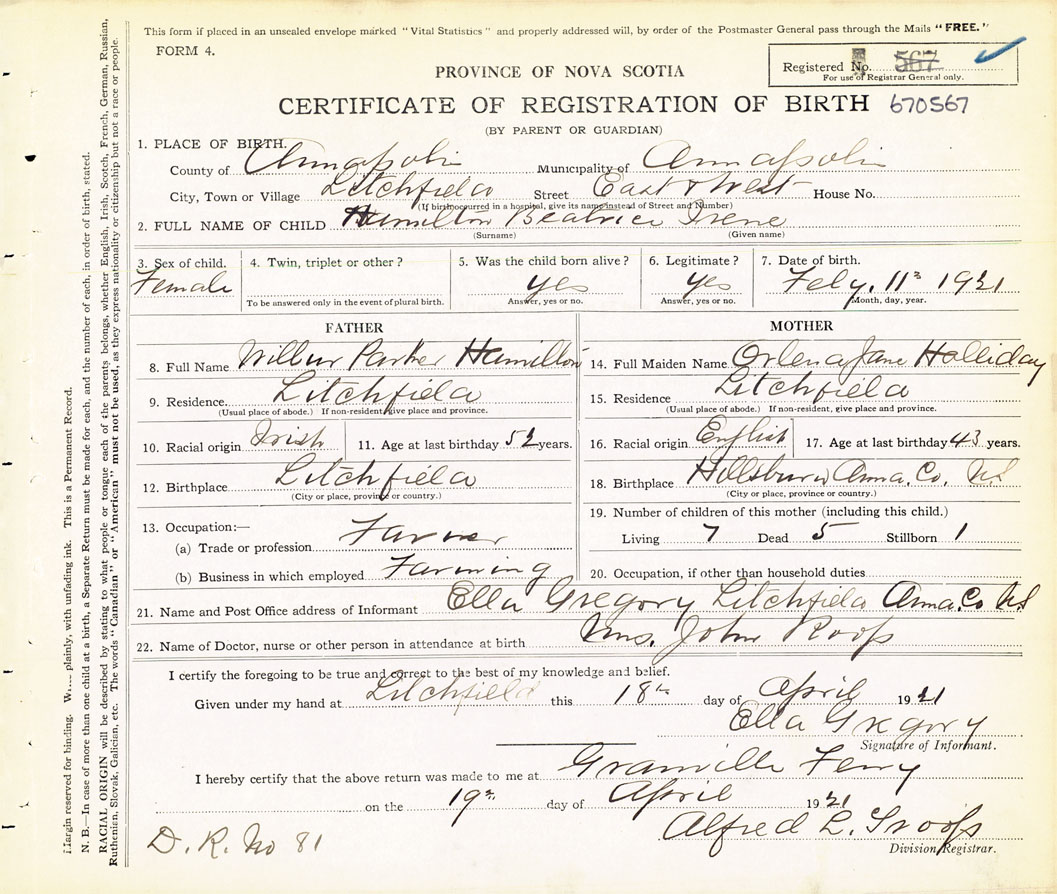 This form if placed in an unsealed envelope marked "Vital Statistics" and properly addressed will, by order of the Postmaster General pass through the Mails "FREE."
FORM 4.
Registered No. 567
For use of Registrar General only.
PROVINCE OF NOVA SCOTIA
CERTIFICATE OF REGISTRATION OF BIRTH 670567
(BY PARENT OR GUARDIAN)
1. PLACE OF BIRTH.
County of Annapolis Municipality of Annapolis
City, Town or Village Litchfield Street East & West House No.
(If birth occurred in a hospital, give its name instead of Street and Number)
2. FULL NAME OF CHILD Hamilton Beatrice Irene
(Surname) (Given name)
3. Sex of child. 4. Twin, triplet or other? 5. Was the child born alive? 6. Legitimate? 7. Date of birth.
Female yes yes Feby. 11th 1921
To be answered only in the event of plural birth. Answer, yes or no. Answer, yes or no. Month, day, year.
FATHER MOTHER
8. Full Name Wilbur Parker Hamilton 14. Full Maiden Name Orlena Jane Halliday
9. Residence. Litchfield 15. Residence Litchfield
(Usual place of abode.) If non-resident, give place and province. (Usual place of abode.) If non-resident, give place and province.
10. Racial origin Irish 11. Age at last birthday 52 years. 16. Racial origin English 17. Age at last birthday 43 years.
12. Birthplace Litchfield 18. Birthplace Hillsburn Anna. Co. NS
(City or place, province or country.) (City or place, province or country.)
13. Occupation:— 19. Number of children of this mother (including this child.)
(a) Trade or profession Farmer Living 7 Dead 5 Stillborn 1
(b) Business in which employed Farming 20. Occupation, if other than household duties
21. Name and Post Office address of Informant Ella Gregory Litchfield Anna. Co NS
22. Name of Doctor, nurse or other person in attendance at birth Mrs. John Roop
I certify the foregoing to be true and correct to the best of my knowledge and belief.
Given under my hand at Litchfield this 18th day of April 1921
Ella Gregory
Signature of Informant.
I hereby certify that the above return was made to me at Granville Ferry
on the 19th day of April 1921
Alfred L. Troop
Division Registrar.
D. R. No 81
Margin reserved for binding. plainly, with unfading ink. This is a Permanent Record.
N. B.—In case of more than one child at a birth, a Separate Return must be made for each, and the number of each, in order of birth, stated.
RACIAL ORIGIN will be described by stating to what people or tongue each of the parents belongs, whether English, Irish, Scotch, French, German, Russian,
Ruthenian, Slovak, Galician, etc. The words "Canadian" or "American" must not be used, as they express nationality or citizenship but not a race or people.